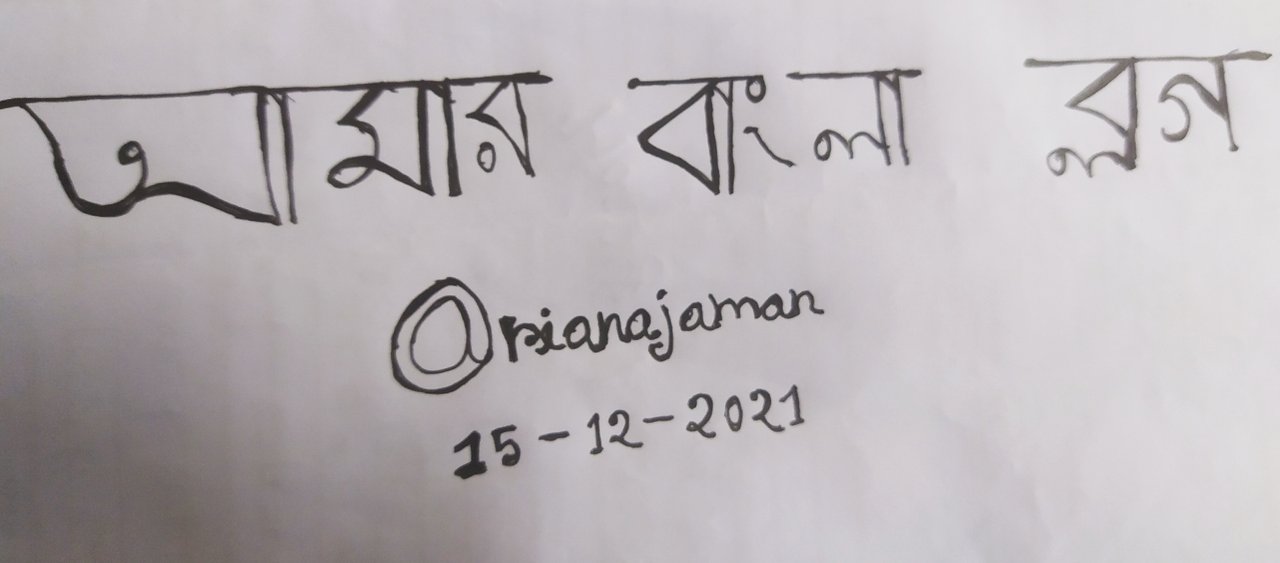 আমার বাংলা ব্লগ
@rianajaman
15-12-2021